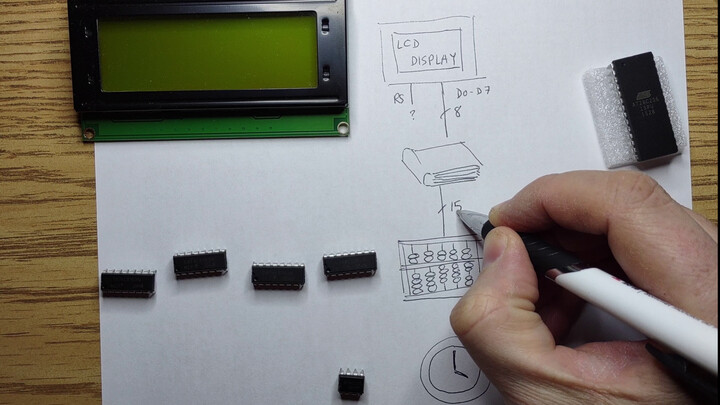 LCD
DISPLAY
RS
D0-D7
?
8
15